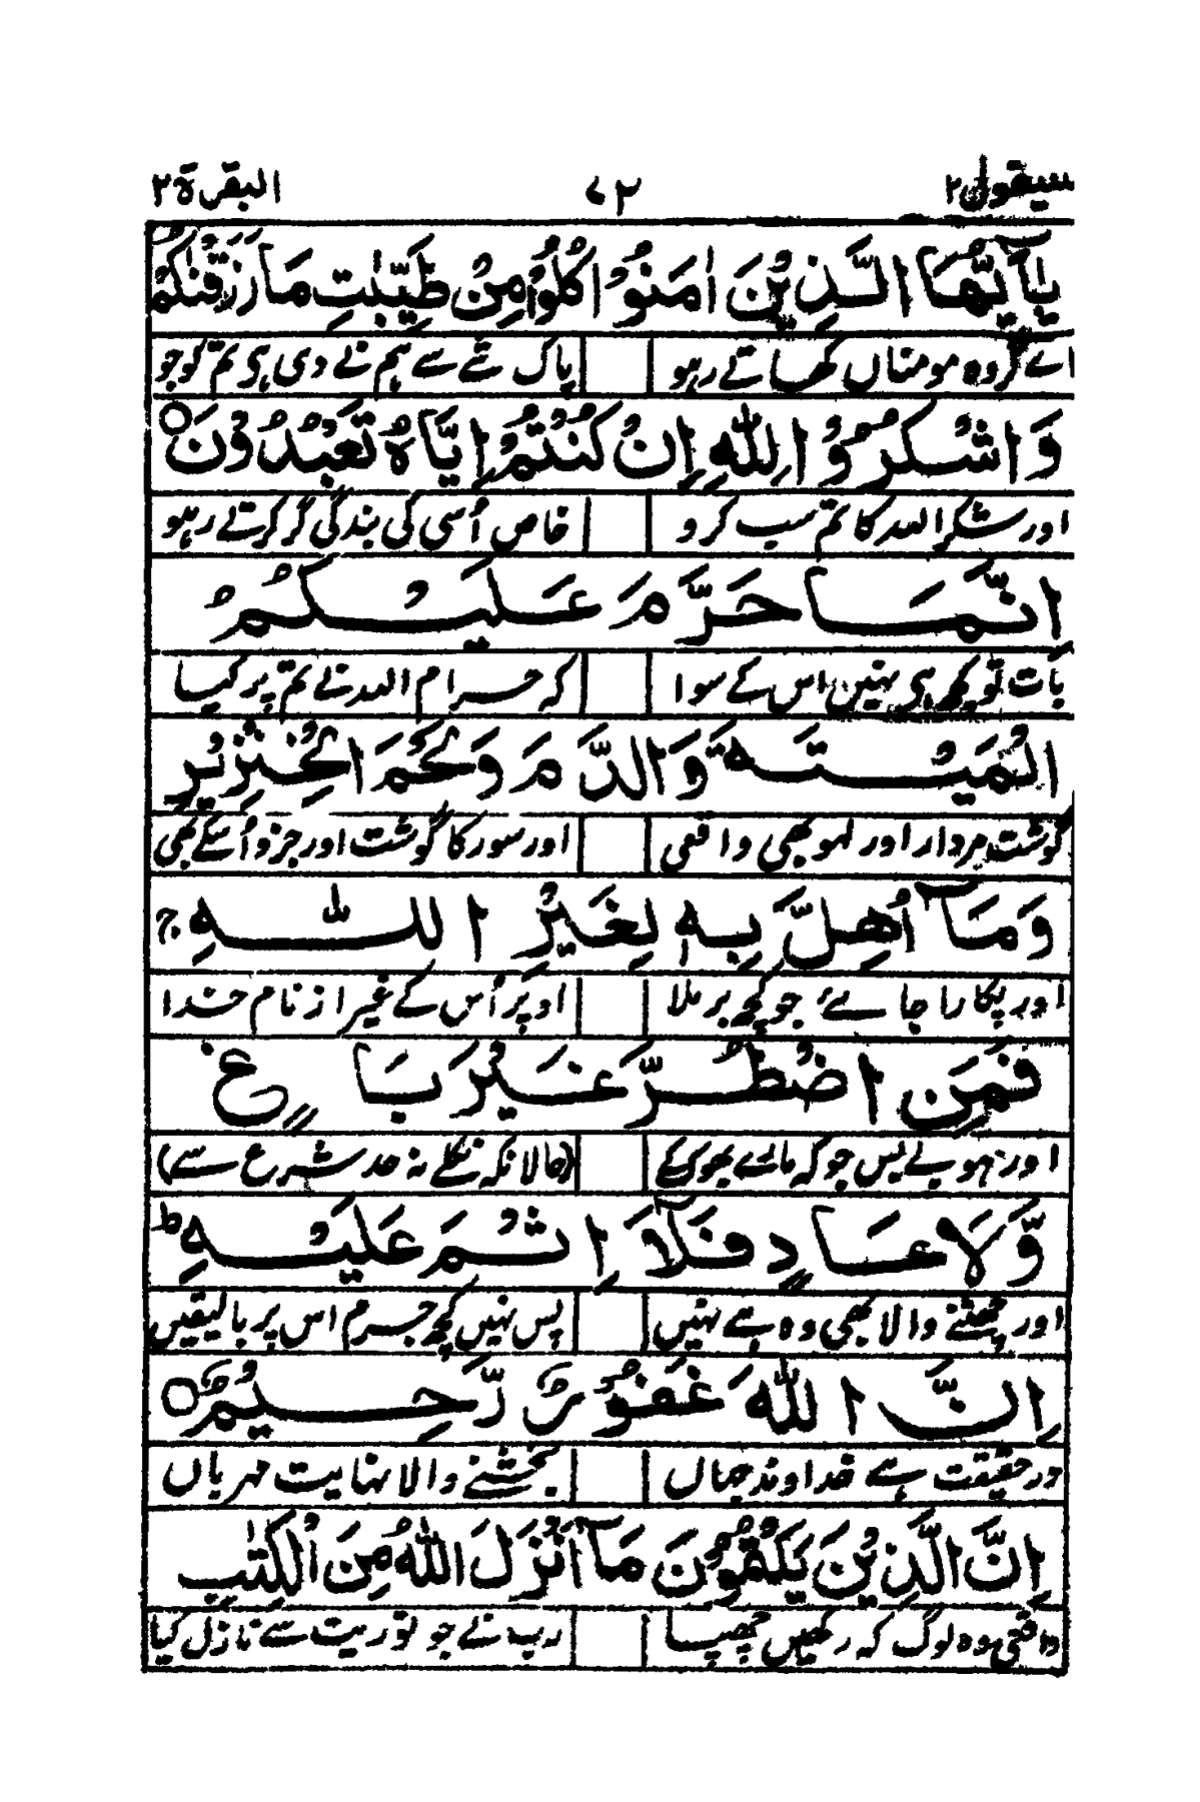 سیقول ۲ ۷۲ البقرۃ ۲
یٰۤاَیُّهَا الَّذِیْنَ اٰمَنُوْا كُلُوْا مِنْ طَیِّبٰتِ مَا رَزَقْنٰكُمْ
اے گروہ مومناں کھاتے رہو پاک شے سے ہم نے دی ہی تم کو جو
وَ اشْكُرُوْا لِلّٰهِ اِنْ كُنْتُمْ اِیَّاهُ تَعْبُدُوْنَ
اور شکر اللہ کا تم سب کرو خاص اُسی کی بندگی گر کرتے رہو
اِنَّمَا حَرَّمَ عَلَیْكُمُ
بات تو کچھ ہی نہیں اس کے سوا کہ حرام اللہ نے تم پر کیا
الْمَیْتَةَ وَ الدَّمَ وَ لَحْمَ الْخِنْزِیْرِ
گوشت مردار اور لہو بھی واقعی اور سور کا گوشت اور جزو اُسکے بھی
وَ مَاۤ اُهِلَّ بِهٖ لِغَیْرِ اللّٰهِ ج
اور پکارا جائے جو کچھ بر ملا اوپر اُس کے غیر از نام خدا
فَمَنِ اضْطُرَّ غَیْرَ بَاغٍ
اور نہو بے بس جو کہ مارے بھوک کے (حالانکہ نکلے نہ حد شرع سے)
وَّ لَا عَادٍ فَلَاۤ اِثْمَ عَلَیْهِ ط
اور جھٹنے والا بھی وہ ہے نہیں پس نہیں کچھ جرم اس پر بالیقیں
اِنَّ اللّٰهَ غَفُوْرٌ رَّحِیْمٌ
در حقیقت ہے خداوند جہاں بخشنے والا نہایت مہرباں
اِنَّ الَّذِیْنَ یَكْتُمُوْنَ مَاۤ اَنْزَلَ اللّٰهُ مِنَ الْكِتٰبِ
واقعی وہ لوگ کہ رکھیں چھپا رب نے جو توریت سے نازل کیا